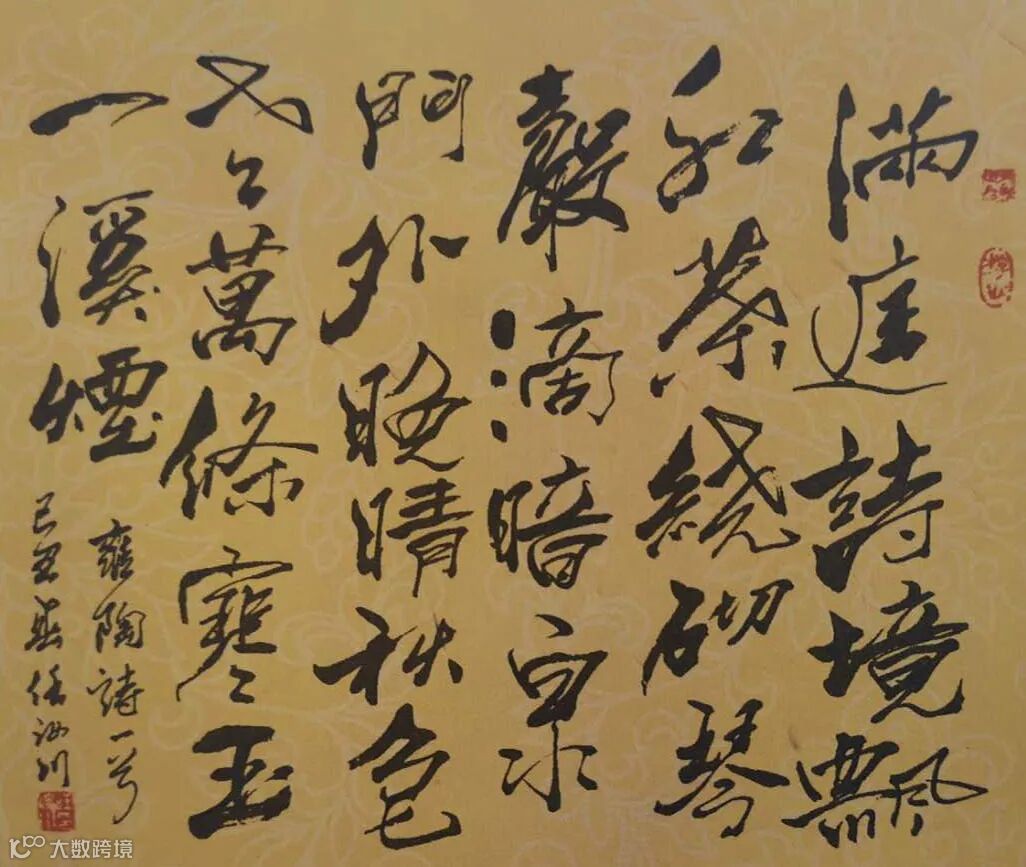 滿庭詩境飄
紅葉繞砌琴
聲滴暗泉
門外晚晴秋色
老萬條寒玉
一溪煙
雍陶詩一首
己丑春任川
大数跨境